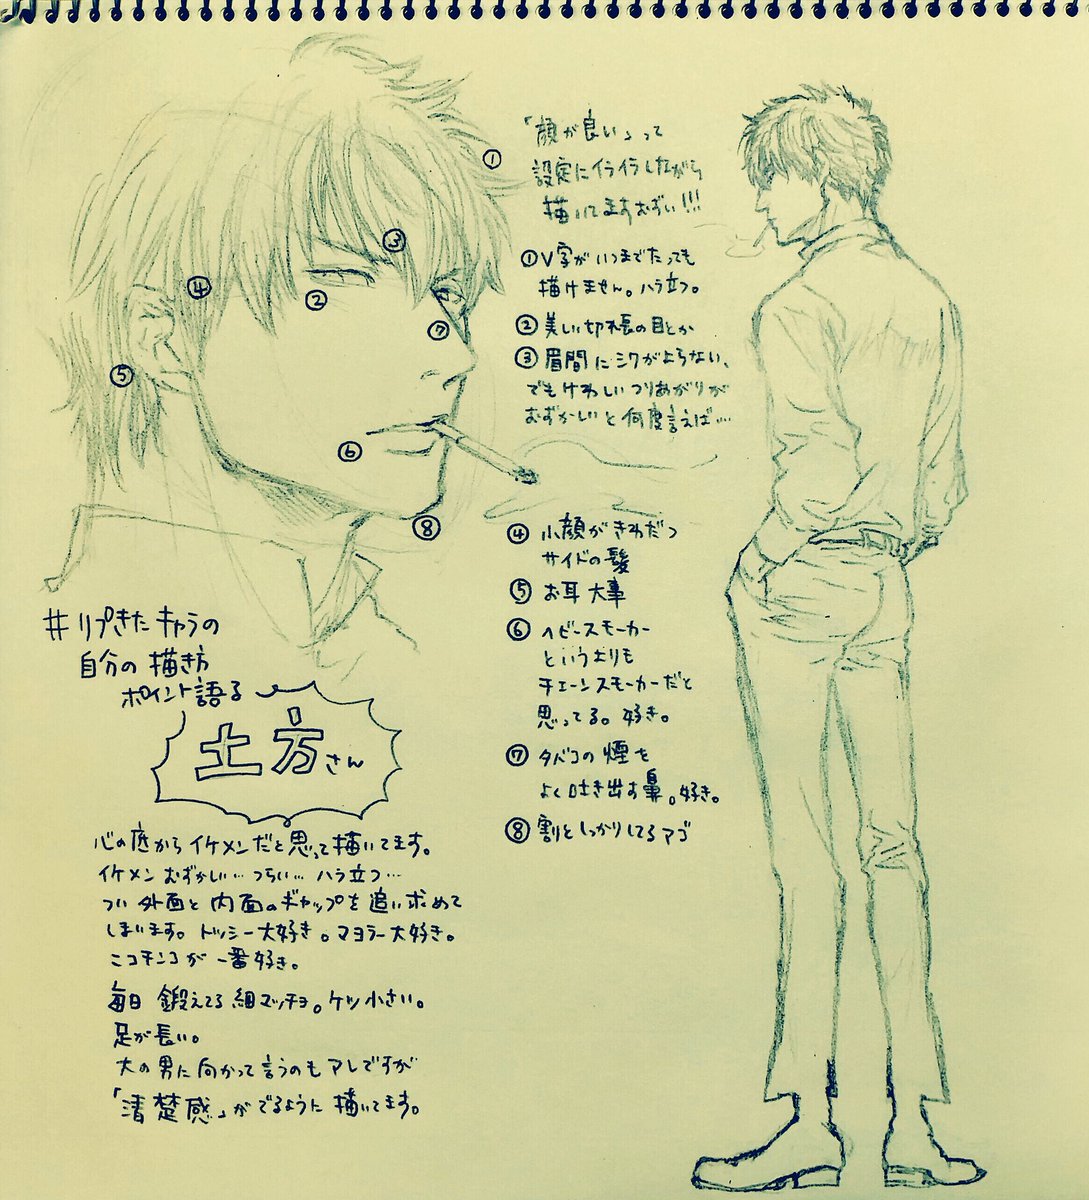 「顔が良い」って
設定にイライラしながら
描いてますむずい!!!
①V字がいつまでたっても
描けません。ハラ立つ。
②美しい切れ長の目とか
③眉間にシワがよらない、
でもけわしいつりあがりが
むずかしいと何度言えば…
④小顔がきわだつ
サイドの髪
⑤お耳大事
⑥ヘビースモーカー
というよりも
チェーンスモーカーだと
思ってる。好き。
⑦タバコの煙を
よく吐き出す鼻。好き。
⑧割としっかりしてるアゴ
#リプきたキャラの
自分の描き方
ポイント語る
土方さん
心の底からイケメンだと思って描いてます。
イケメンむずかしい…つらい…ハラ立つ…
つい外面と内面のギャップを追い求めて
しまいます。トッシー大好き。マヨラー大好き。
ニコチンコが一番好き。
毎日鍛えてる細マッチョ。ケツ小さい。
足が長い。
大の男に向かって言うのもアレですが
「清楚感」がでるように描いてます。
①
②
③
④
⑤
⑥
⑦
⑧